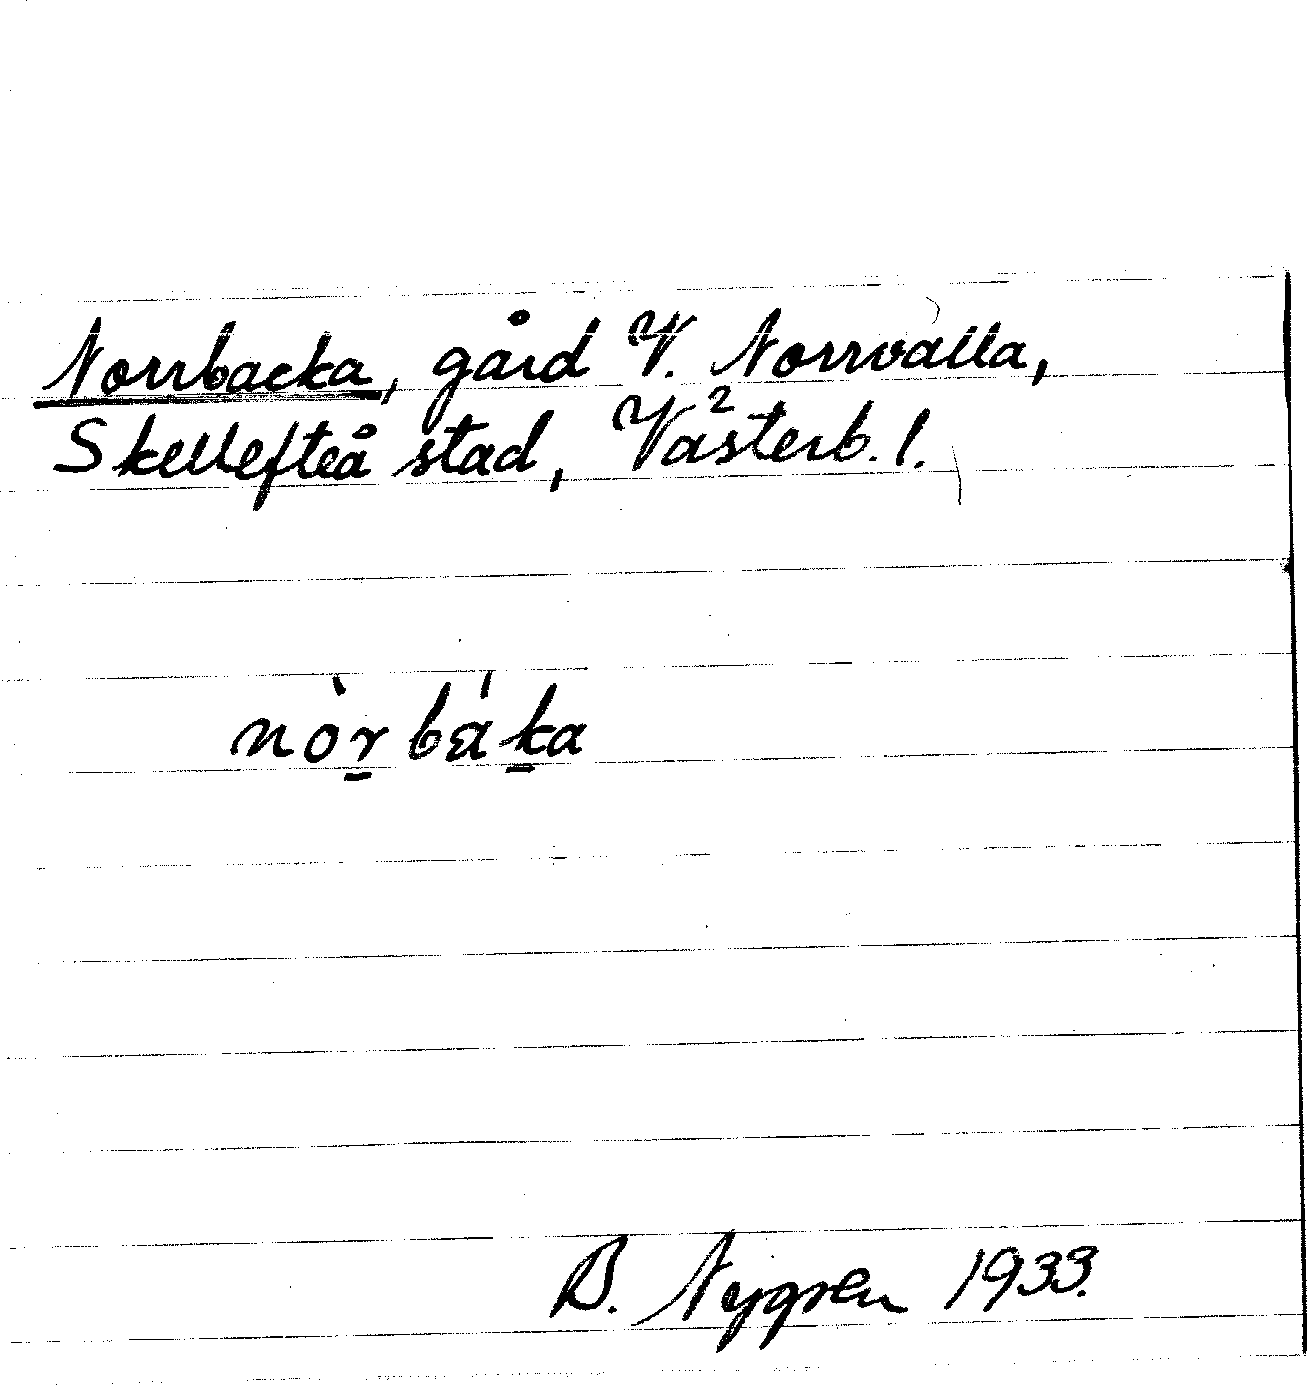 Norrbacka, gård V. Norrvalla,
Skellefteå stad, Västerb. l.
nòr̠bá̠ka
B. Nygren 1933.